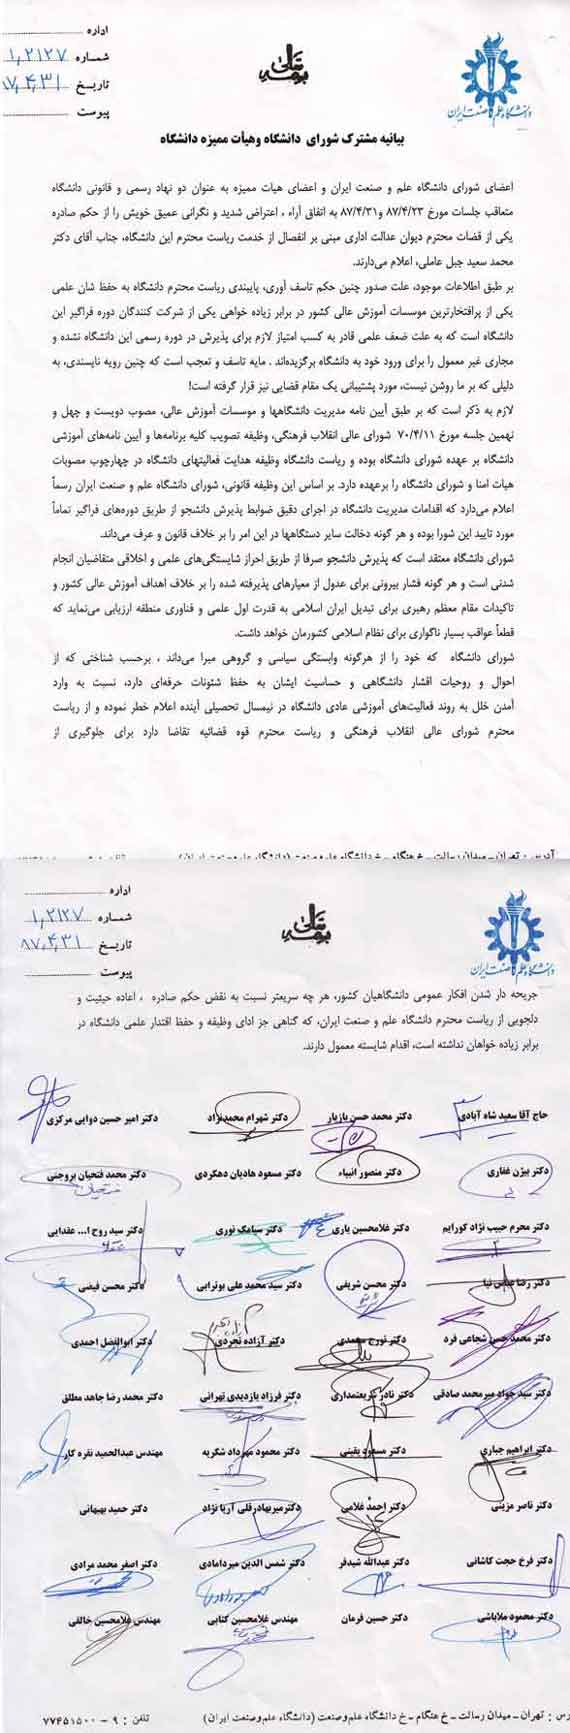 اداره
شماره ۱٫۲۱۲۷
تاریخ ۸۷٫۴٫۳۱
پیوست
دانشگاه علم و صنعت ایران
بیانیه مشترک شورای دانشگاه وهیأت ممیزه دانشگاه
اعضای شورای دانشگاه علم و صنعت ایران و اعضای هیات ممیزه به عنوان دو نهاد رسمی و قانونی دانشگاه
متعاقب جلسات مورخ ۸۷/۴/۲۳ و ۸۷/۴/۳۱ به اتفاق آراء ، اعتراض شدید و نگرانی عمیق خویش را از حکم صادره
یکی از قضات محترم دیوان عدالت اداری مبنی بر انفصال از خدمت ریاست محترم این دانشگاه، جناب آقای دکتر
محمد سعید جبل عاملی، اعلام می‌دارند.
بر طبق اطلاعات موجود، علت صدور چنین حکم تاسف آوری، پایبندی ریاست محترم دانشگاه به حفظ شان علمی
یکی از پرافتخارترین موسسات آموزش عالی کشور در برابر زیاده خواهی یکی از شرکت کنندگان دوره فراگیر این
دانشگاه است که به علت ضعف علمی قادر به کسب امتیاز لازم برای پذیرش در دوره رسمی این دانشگاه نشده و
مجاری غیر معمول را برای ورود خود به دانشگاه برگزیده‌اند . مایه تاسف و تعجب است که چنین رویه ناپسندی، به
دلیلی که بر ما روشن نیست، مورد پشتیبانی یک مقام قضایی نیز قرار گرفته است!
لازم به ذکر است که بر طبق آیین نامه مدیریت دانشگاهها و موسسات آموزش عالی، مصوب دویست و چهل و
نهمین جلسه مورخ ۷۰/۴/۱۱ شورای عالی انقلاب فرهنگی، وظیفه تصویب کلیه برنامه‌ها و آیین نامه‌های آموزشی
دانشگاه بر عهده شورای دانشگاه بوده و ریاست دانشگاه وظیفه هدایت فعالیتهای دانشگاه در چهارچوب مصوبات
هیات امنا و شورای دانشگاه را برعهده دارد. بر اساس این وظیفه قانونی، شورای دانشگاه علم و صنعت ایران رسماً
اعلام می‌دارد که اقدامات مدیریت دانشگاه در اجرای دقیق ضوابط پذیرش دانشجو از طریق دوره‌های فراگیر تماماً
مورد تایید این شورا بوده و هر گونه دخالت سایر دستگاهها در این امر را بر خلاف قانون و عرف می‌داند.
شورای دانشگاه معتقد است که پذیرش دانشجو صرفا از طریق احراز شایستگی‌های علمی و اخلاقی متقاضیان انجام
شدنی است و هر گونه فشار بیرونی برای عدول از معیارهای پذیرفته شده را بر خلاف اهداف آموزش عالی کشور و
تاکیدات مقام معظم رهبری برای تبدیل ایران اسلامی به قدرت اول علمی و فناوری منطقه ارزیابی می‌نماید که
قطعاً عواقب بسیار ناگواری برای نظام اسلامی کشورمان خواهد داشت.
شورای دانشگاه که خود را از هرگونه وابستگی سیاسی و گروهی مبرا می‌داند ، برحسب شناختی که از
احوال و روحیات اقشار دانشگاهی و حساسیت ایشان به حفظ شئونات حرفه‌ای دارد، نسبت به وارد
آمدن خلل به روند فعالیت‌های آموزشی عادی دانشگاه در نیمسال تحصیلی آینده اعلام خطر نموده و از ریاست
محترم شورای عالی انقلاب فرهنگی و ریاست محترم قوه قضائیه تقاضا دارد برای جلوگیری از
آدرس : تهران – میدان رسالت – خ هنگام – خ دانشگاه علم و صنعت (دانشگاه علم و صنعت ایران)
اداره
شماره ۱٫۲۱۲۷
تاریخ ۸۷٫۴٫۳۱
پیوست
دانشگاه علم و صنعت ایران
جریحه دار شدن افکار عمومی دانشگاهیان کشور، هر چه سریعتر نسبت به نقض حکم صادره ، اعاده حیثیت و
دلجویی از ریاست محترم دانشگاه علم و صنعت ایران، که گناهی جز ادای وظیفه و حفظ اقتدار علمی دانشگاه در
برابر زیاده خواهان نداشته است، اقدام شایسته معمول دارند.
حاج آقا سعید شاه آبادی دکتر محمد حسن بازیار دکتر شهرام محمدنژاد دکتر امیر حسین دوایی مرکزی
دکتر بیژن غفاری دکتر منصور انبیاء دکتر مسعود هادیان دهکردی دکتر محمد فتحیان بروجنی
دکتر محرم حبیب نژاد کورایم دکتر غلامحسین یاری دکتر سیامک نوری دکتر سید روح ا... عقدایی
دکتر رضا عباس نیا دکتر محسن شریفی دکتر سید محمد علی بوترابی دکتر محسن فیضی
دکتر محمد حسن شجاعی فرد دکتر تورج محمدی دکتر آزاده تجردی دکتر ابوالفضل احمدی
دکتر سید جواد میرمحمد صادقی دکتر نادر شریعتمداری دکتر فرزاد بازدیدی تهرانی دکتر محمد رضا جاهد مطلق
دکتر ابراهیم جباری دکتر مسعود یقینی دکتر محمود مهرداد شکریه مهندس عبدالحمید نقره کار
دکتر ناصر مزینی دکتر احمد غلامی دکتر میربهادرقلی آریا نژاد دکتر حمید بهبهانی
دکتر فرخ حجت کاشانی دکتر عبدالله شیدفر دکتر شمس الدین میردامادی دکتر اصغر محمد مرادی
دکتر محمود ملاباشی دکتر حسین فرمان مهندس غلامحسین کتابی مهندس غلامحسین خالقی
رس : تهران – میدان رسالت – خ هنگام – خ دانشگاه علم و صنعت (دانشگاه علم و صنعت ایران) تلفن : ۹ – ۷۷۴۵۱۵۰۰